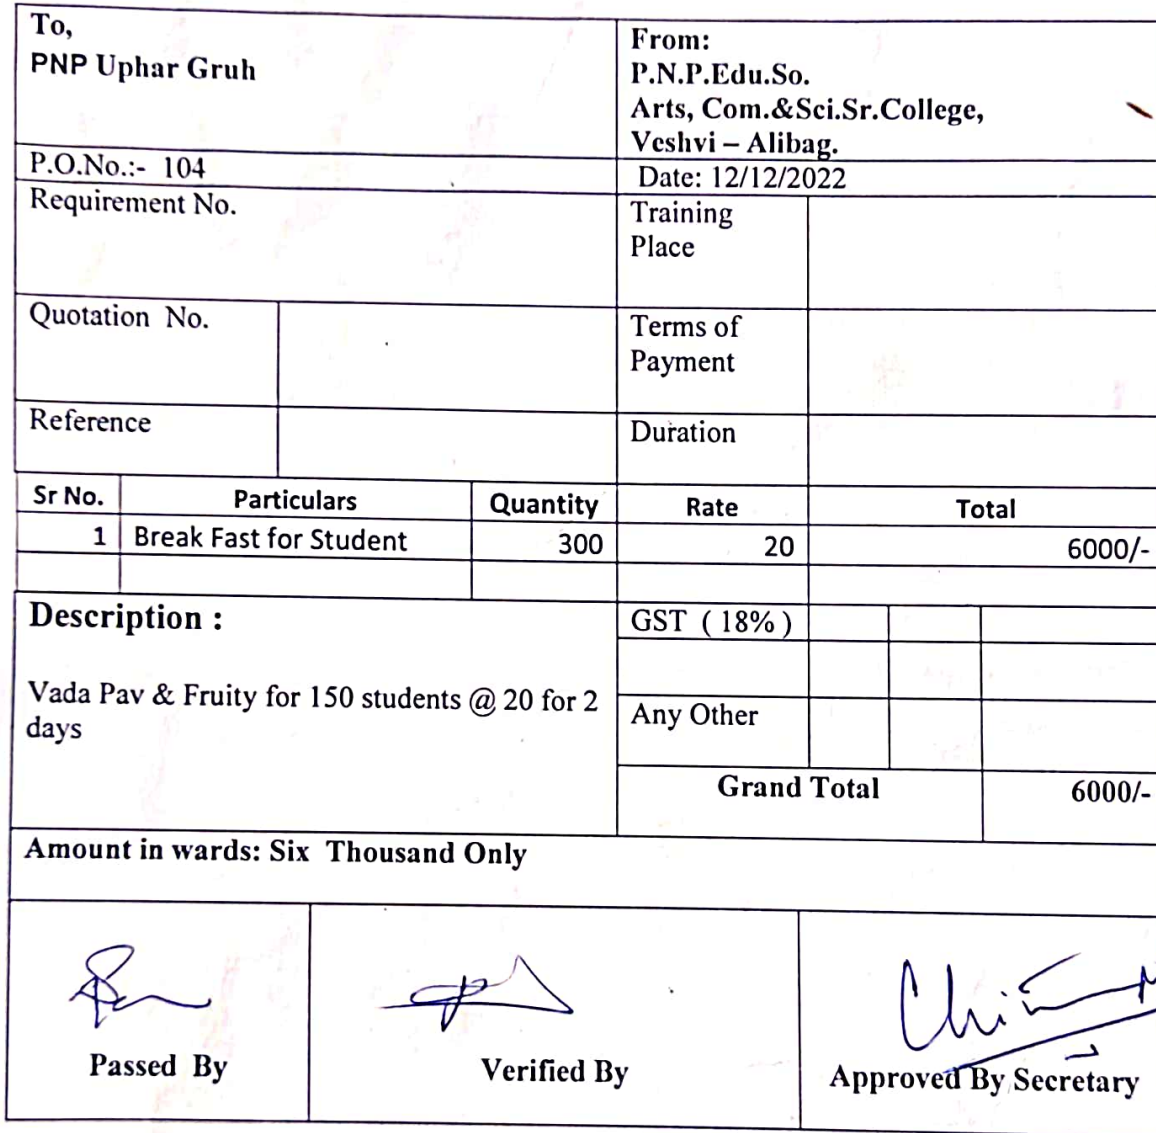 To,
PNP Uphar Gruh
From:
P.N.P.Edu.So.
Arts, Com.&Sci.Sr.College,
Veshvi – Alibag.
P.O.No.:- 104
Date: 12/12/2022
Requirement No.
Training
Place
Quotation No.
Terms of
Payment
Reference
Duration
Sr No. Particulars Quantity Rate Total
1 Break Fast for Student 300 20 6000/-
Description :
GST ( 18% )
Vada Pav & Fruity for 150 students @ 20 for 2
days
Any Other
Grand Total 6000/-
Amount in wards: Six Thousand Only
Passed By
Verified By
Approved By Secretary